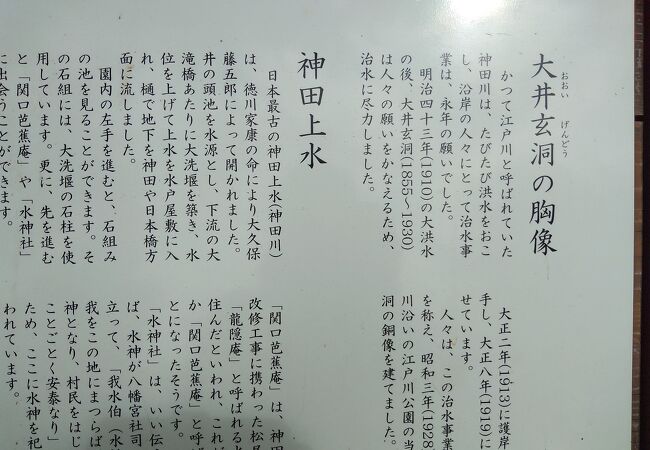 大井玄洞の胸像
おおい
げんどう
かつて江戸川と呼ばれていた
神田川は、たびたび洪水をおこ
し、沿岸の人々にとって治水事
業は、永年の願いでした。
明治四十三年(1910)の大洪水
の後、大井玄洞(1855～1930)
は人々の願いをかなえるため、
治水に尽力しました。
大正二年(1913)に護岸
手し、大正八年(1919)に
せています。
人々は、この治水事業
を称え、昭和三年(1928
川沿いの江戸川公園の当
洞の銅像を建てました。
神田上水
日本最古の神田上水(神田川)
は、徳川家康の命により大久保
藤五郎によって開かれました。
井の頭池を水源とし、下流の大
滝橋あたりに大洗堰を築き、水
位を上げて上水を水戸屋敷に入
れ、樋で地下を神田や日本橋方
面に流しました。
園内の左手を進むと、石組み
の池を見ることができます。そ
の石組には、大洗堰の石柱を使
用しています。更に、先を進む
と「関口芭蕉庵」や「水神社」
に出会うことができます。
「関口芭蕉庵」は、神田
改修工事に携わった松尾
「龍隠庵」と呼ばれる
住んだといわれ、これが
か「関口芭蕉庵」と呼ば
とになったそうです。
「水神社」は、いい伝
ば、水神が八幡宮社司
立って、「我水伯(水
我をこの地にまつらば
神となり、村民をはじ
ことごとく安泰なり」
ため、ここに水神を祀
われています。